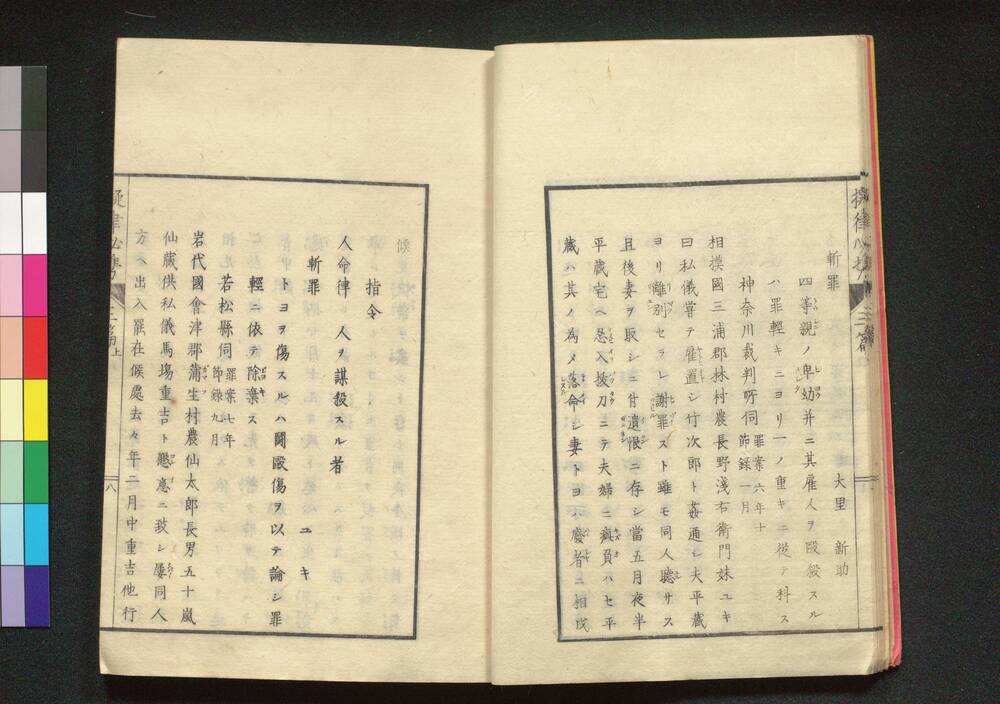 斬罪　大里　新助
四等親ノ卑幼并ニ其雇人ヲ毆殺スル
ハ罪輕キニヨリ一ノ重キニ從テ科ス
神奈川裁判所伺 罪案六年十 節録一月
相摸國三浦郡林村農長野淺右衛門妹ユキ
曰私儀甞テ雇置シ竹次郎ト姦通シ夫平蔵
ヨリ離別セラレ謝罪スト雖モ同人聽サス
且後妻ヲ取シニ付遺恨ニ存シ當五月夜半
平蔵宅ヘ忍入拔刀ニテ夫婦ニ疵負ハセ平
蔵ハ其ノ為メ落命シ妻トヨハ廢者ニ相成
候
指令
人命律　人ヲ謀殺スル者
斬罪　ユキ
トヨヲ傷スルハ鬪毆傷ヲ以テ論シ罪
輕ニ依テ除棄ス
若松縣伺 罪案七年 節録九月
岩代國會津郡蒲生村農仙太郎長男五十嵐
仙蔵供私儀馬塲重吉ト懇意ニ致シ屡同人
方ヘ出入罷在候處去々年二月中重吉他行
八